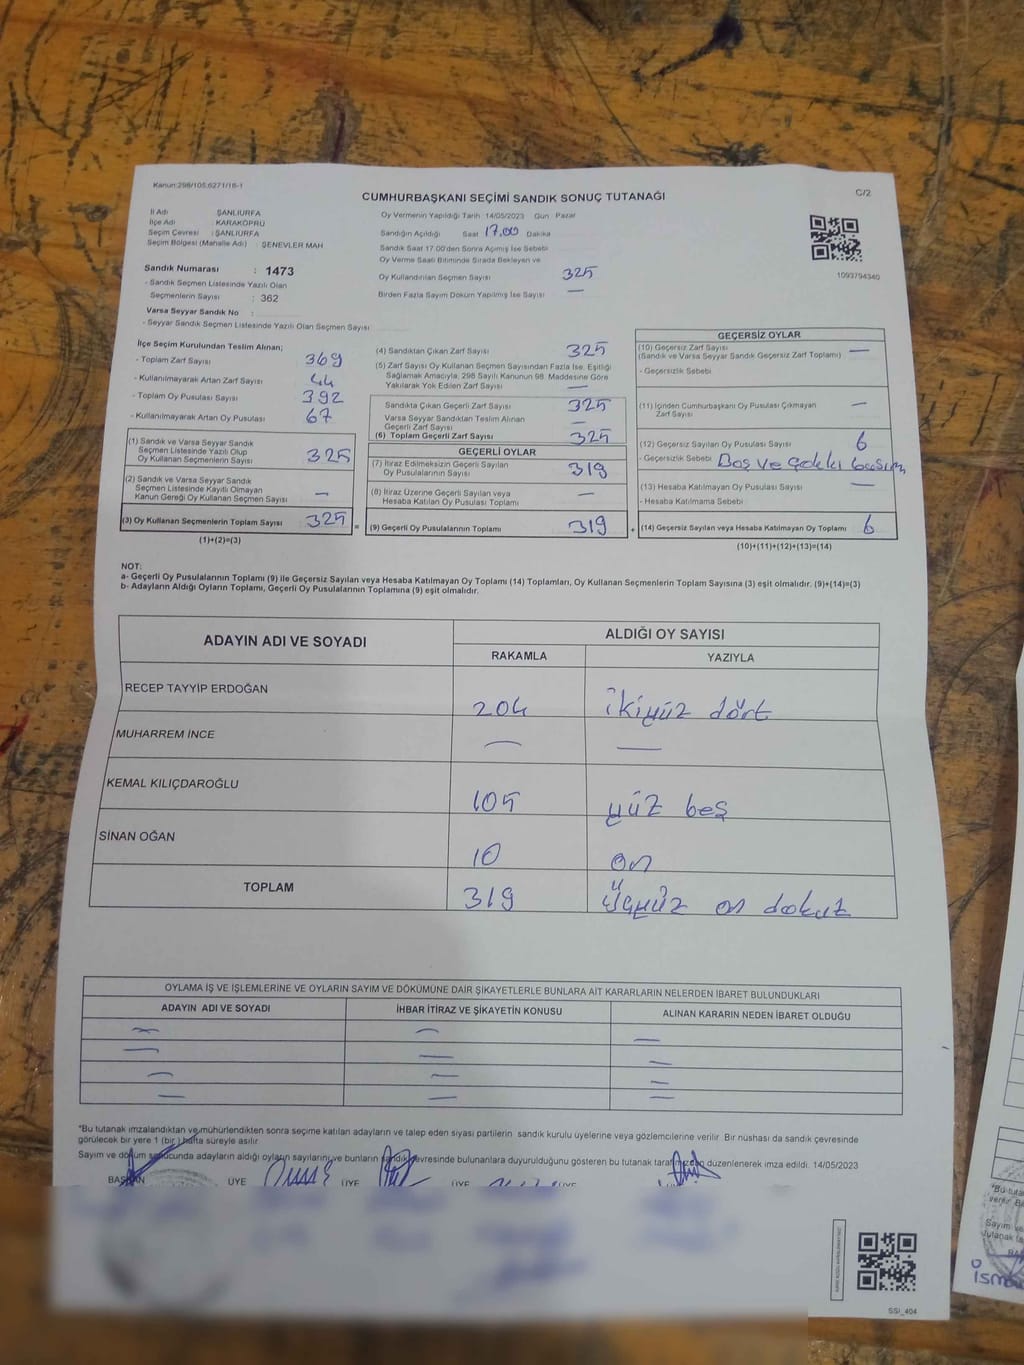 Kanun:298/105;6271/18-1
CUMHURBAŞKANI SEÇİMİ SANDIK SONUÇ TUTANAĞI
C/2
İl Adı : ŞANLIURFA
İlçe Adı : KARAKÖPRÜ
Seçim Çevresi : ŞANLIURFA
Seçim Bölgesi (Mahalle Adı) : ŞENEVLER MAH
Oy Vermenin Yapıldığı Tarih 14/05/2023 Gün Pazar
Sandığın Açıldığı Saat 17.00 Dakika
Sandık Saat 17.00'den Sonra Açılmış İse Sebebi
Oy Verme Saati Bitiminde Sırada Bekleyen ve
Oy Kullandırılan Seçmen Sayısı 325
Birden Fazla Sayım Döküm Yapılmış İse Sayısı —
1093794340
Sandık Numarası : 1473
- Sandık Seçmen Listesinde Yazılı Olan
Seçmenlerin Sayısı : 362
Varsa Seyyar Sandık No :
- Seyyar Sandık Seçmen Listesinde Yazılı Olan Seçmen Sayısı
İlçe Seçim Kurulundan Teslim Alınan;
- Toplam Zarf Sayısı 369
- Kullanılmayarak Artan Zarf Sayısı 44
- Toplam Oy Pusulası 392
- Kullanılmayarak Artan Oy Pusulası 67
(1) Sandık ve Varsa Seyyar Sandık
Seçmen Listesinde Yazılı Olup
Oy Kullanan Seçmenlerin Sayısı 325
(2) Sandık ve Varsa Seyyar Sandık
Seçmen Listesinde Kayıtlı Olmayan
Kanun Gereği Oy Kullanan Seçmen Sayısı —
(3) Oy Kullanan Seçmenlerin Toplam Sayısı 325 =
(1)+(2)=(3)
(4) Sandıktan Çıkan Zarf Sayısı 325
(5) Zarf Sayısı Oy Kullanan Seçmen Sayısından Fazla İse, Eşitliği
Sağlamak Amacıyla, 298 Sayılı Kanunun 98. Maddesine Göre
Yakılarak Yok Edilen Zarf Sayısı —
Sandıkta Çıkan Geçerli Zarf Sayısı 325
Varsa Seyyar Sandıktan Teslim Alınan
Geçerli Zarf Sayısı —
(6) Toplam Geçerli Zarf Sayısı 325
GEÇERLİ OYLAR
(7) İtiraz Edilmeksizin Geçerli Sayılan
Oy Pusulası Sayısı 319
(8) İtiraz Üzerine Geçerli Sayılan veya
Hesaba Katılan Oy Pusulası Toplamı —
(9) Geçerli Oy Pusulalarının Toplamı 319 +
GEÇERSİZ OYLAR
(10) Geçersiz Zarf Sayısı
(Sandık ve Varsa Seyyar Sandık Geçersiz Zarf Toplamı) —
- Geçersizlik Sebebi
(11) İçinden Cumhurbaşkanı Oy Pusulası Çıkmayan
Zarf Sayısı —
(12) Geçersiz Sayılan Oy Pusulası Sayısı 6
- Geçersizlik Sebebi Boş ve
(13) Hesaba Katılmayan Oy Pusulası Sayısı —
- Hesaba Katılmama Sebebi
(14) Geçersiz Sayılan veya Hesaba Katılmayan Oy Toplamı 6
(10)+(11)+(12)+(13)=(14)
NOT:
a- Geçerli Oy Pusulalarının Toplamı (9) ile Geçersiz Sayılan veya Hesaba Katılmayan Oy Toplamı (14) Toplamları, Oy Kullanan Seçmenlerin Toplam Sayısına (3) eşit olmalıdır. (9)+(14)=(3)
b- Adayların Aldığı Oyların Toplamı, Geçerli Oy Pusulalarının Toplamına (9) eşit olmalıdır.
ADAYIN ADI VE SOYADI
ALDIĞI OY SAYISI
RAKAMLA YAZIYLA
RECEP TAYYİP ERDOĞAN 204 ikiyüz dört
MUHARREM İNCE — —
KEMAL KILIÇDAROĞLU 105 yüz beş
SİNAN OĞAN 10 on
TOPLAM 319 Üçyüz on dokuz
OYLAMA İŞ VE İŞLEMLERİNE VE OYLARIN SAYIM VE DÖKÜMÜNE DAİR ŞİKAYETLERLE BUNLARA AİT KARARLARIN NELERDEN İBARET BULUNDUKLARI
ADAYIN ADI VE SOYADI İHBAR İTİRAZ VE ŞİKAYETİN KONUSU ALINAN KARARIN NEDEN İBARET OLDUĞU
— — —
— — —
— — —
— — —
*Bu tutanak imzalandıktan ve mühürlendikten sonra seçime katılan adayların ve talep eden siyasi partilerin sandık kurulu üyelerine veya gözlemcilerine verilir. Bir nüshası da sandık çevresinde
görülecek bir yere 1 (bir ) hafta süreyle asılır.
Sayım ve döküm sonucunda adayların aldığı oyların sayılarını ve bunların sandık çevresinde bulunanlara duyurulduğunu gösteren bu tutanak tarafımızdan düzenlenerek imza edildi. 14/05/2023
BAŞKAN ÜYE ÜYE ÜYE ÜYE
SSİ_404
*Bu tuta
verilir. Bi
Sayım ve
tutanak ta